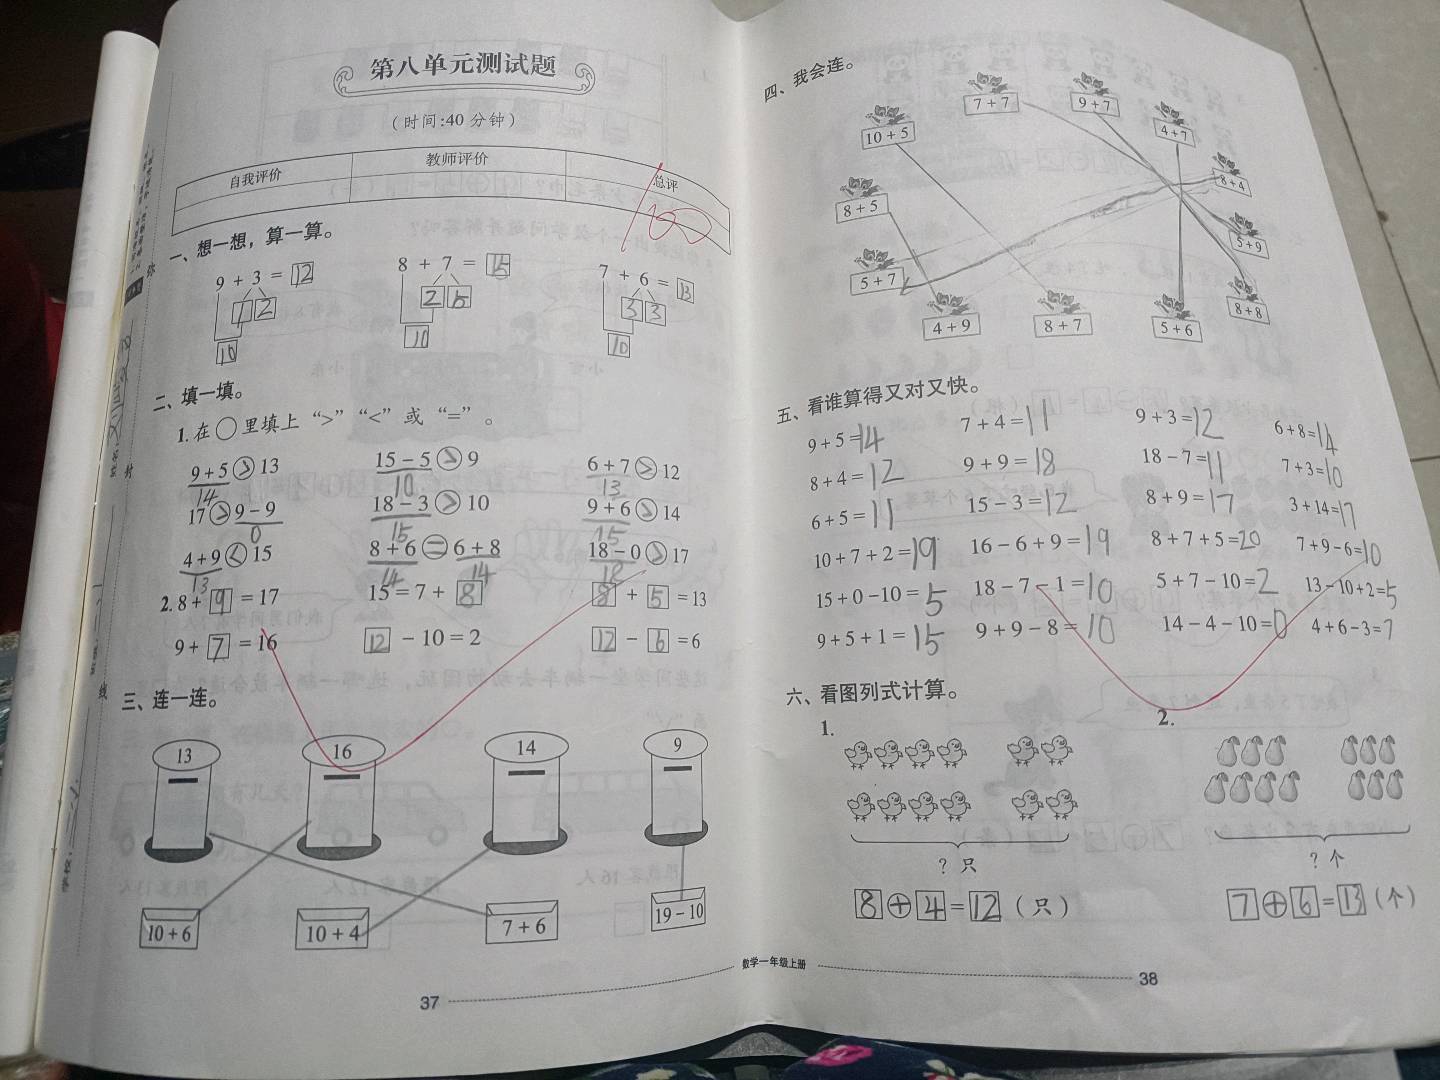 第八单元测试题
(时间:40分钟)
自我评价 教师评价 总评
100
一、想一想，算一算。
9 + 3 = 12 8 + 7 = 15 7 + 6 = 13
1 2 2 5 3 3
10 10 10
二、填一填。
1.在○里填上“>”“<”或“=”。
9+5>13 15-5>9 6+7>12
14 10 13
17>9-9 18-3>10 9+6>14
0 15 15
4+9<15 8+6=6+8 18-0>17
13 14 14 18
2. 8+9=17 15=7+8 8+5=13
9+7=16 12-10=2 12-6=6
三、连一连。
13 16 14 9
10+6 10+4 7+6 19-10
37
四、我会连。
7+7 9+7
10+5 4+7
8+4
8+5
5+9
5+7
8+8
4+9 8+7 5+6
五、看谁算得又对又快。
9+5=14 7+4=11 9+3=12 6+8=14
8+4=12 9+9=18 18-7=11 7+3=10
6+5=11 15-3=12 8+9=17 3+14=17
10+7+2=19 16-6+9=19 8+7+5=20 7+9-6=10
15+0-10=5 18-7-1=10 5+7-10=2 13-10+2=5
9+5+1=15 9+9-8=10 14-4-10=0 4+6-3=7
六、看图列式计算。
1. 2.
?只 ?个
8+4=12(只) 7+6=13(个)
数学一年级上册
38